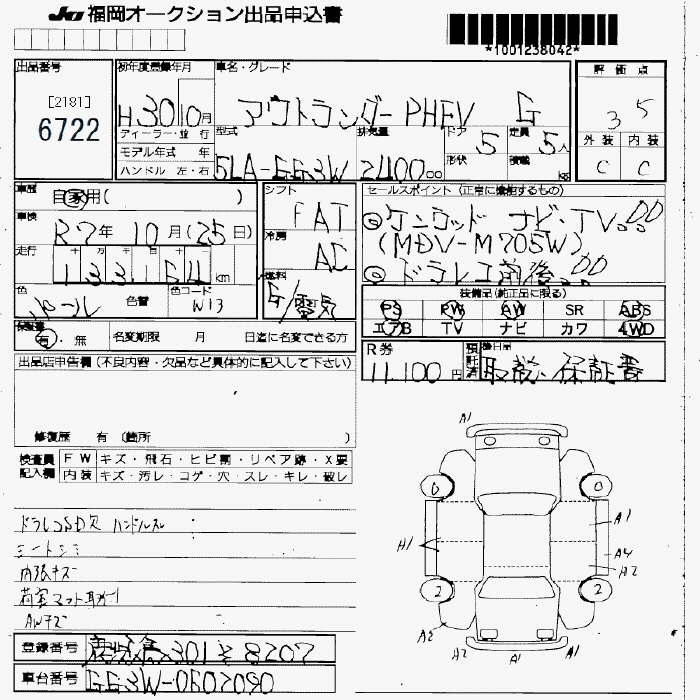 JU 福岡オークション出品申込書
*1001238042*
出品番号
[2181]
6722
初年度登録年月
H30 10月
ディーラー・並 行
モデル年式 年
ハンドル 左・右
車名・グレード
アウトランダーPHEV G
型式
5LA-GG3W
排気量
2400 00
ドア 5
形状
定員 5人
積載 kg
評価点
3 5
外装 内装
C C
車歴
自家用( )
車検
R7年 10月(25日)
走行
十 万 千 百 十
133164km
色
パール
色替
色コード
W13
シフト
FAT
冷房
AC
燃料
G/電気
セールスポイント (正常に機能するもの)
◎ケンウッド ナビ・TV
(MDV-M705W)
◎ドラレコ前後
装備品(純正品に限る)
PS PW AW SR ABS
エアB TV ナビ カワ 4WD
有・無
名変期限 月 日迄に名変できる方
R券
11,100円
預託済
後日品
取説・保証書
出品店申告欄(不良内容・欠品など具体的に記入して下さい)
修復歴 有 (箇所 )
検査員記入欄
FW キズ・飛石・ヒビ割・リペア跡・X要
内装 キズ・汚レ・コゲ・穴・スレ・キレ・破レ
ドラレコSD欠 ハンドルスレ
シートシミ
内張キズ
荷室マット
AWキズ
A1
0 0
A1
A1
A4
A2
2 2
A2
A2 A1 A1
登録番号
301 8207
車台番号
GG3W-0602090